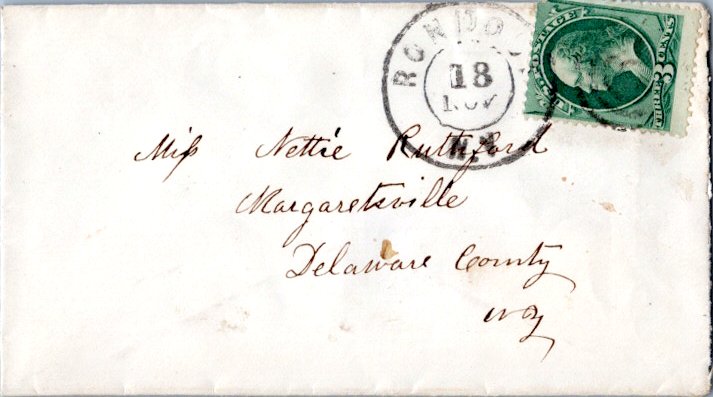 RONDO
18
NOV
N.Y.
U.S. POSTAGE
3 CENTS
Miss Nettie Rutherford
Margaretsville
Delaware County
NY